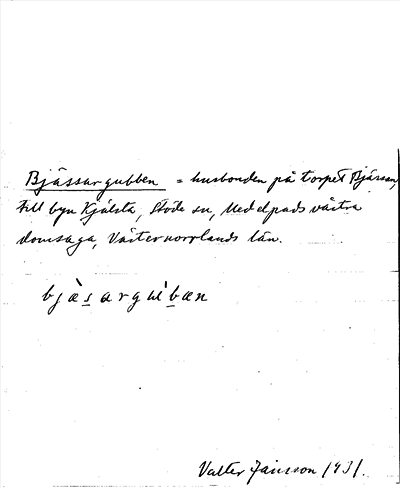 Bjässargubben = husbonden på torpet Bjässan,
till byn Kjälsta, Stöde sn, Medelpads västra
domsaga, Västernorrlands län.
bjæ̀s̲argub̲æn
Valter Jansson 1931.